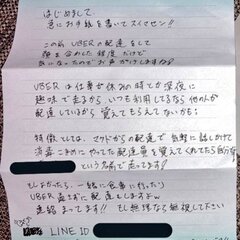 はじめまして
急にお手紙を書いてスイマセン!!
この前UBERの配達をして
顔を合わした程度だけで
気になったのでお声がけしますね!!
UBERは仕事が休みの時とか深夜に
趣味で走るから いつも利用してるなら他の人が
配達しているから覚えてもらえてないかも
特徴としては、マクドからの配達で気軽に話しかけて
消毒こまめにやってた配達員を覚えてくれてたら
という名前で走ってます!
もしよかったら、一緒に食事に行ったり
UBER 直ずに配達もしますよw
連絡まってます!! もし無理なら無視して下さい
LINE ID